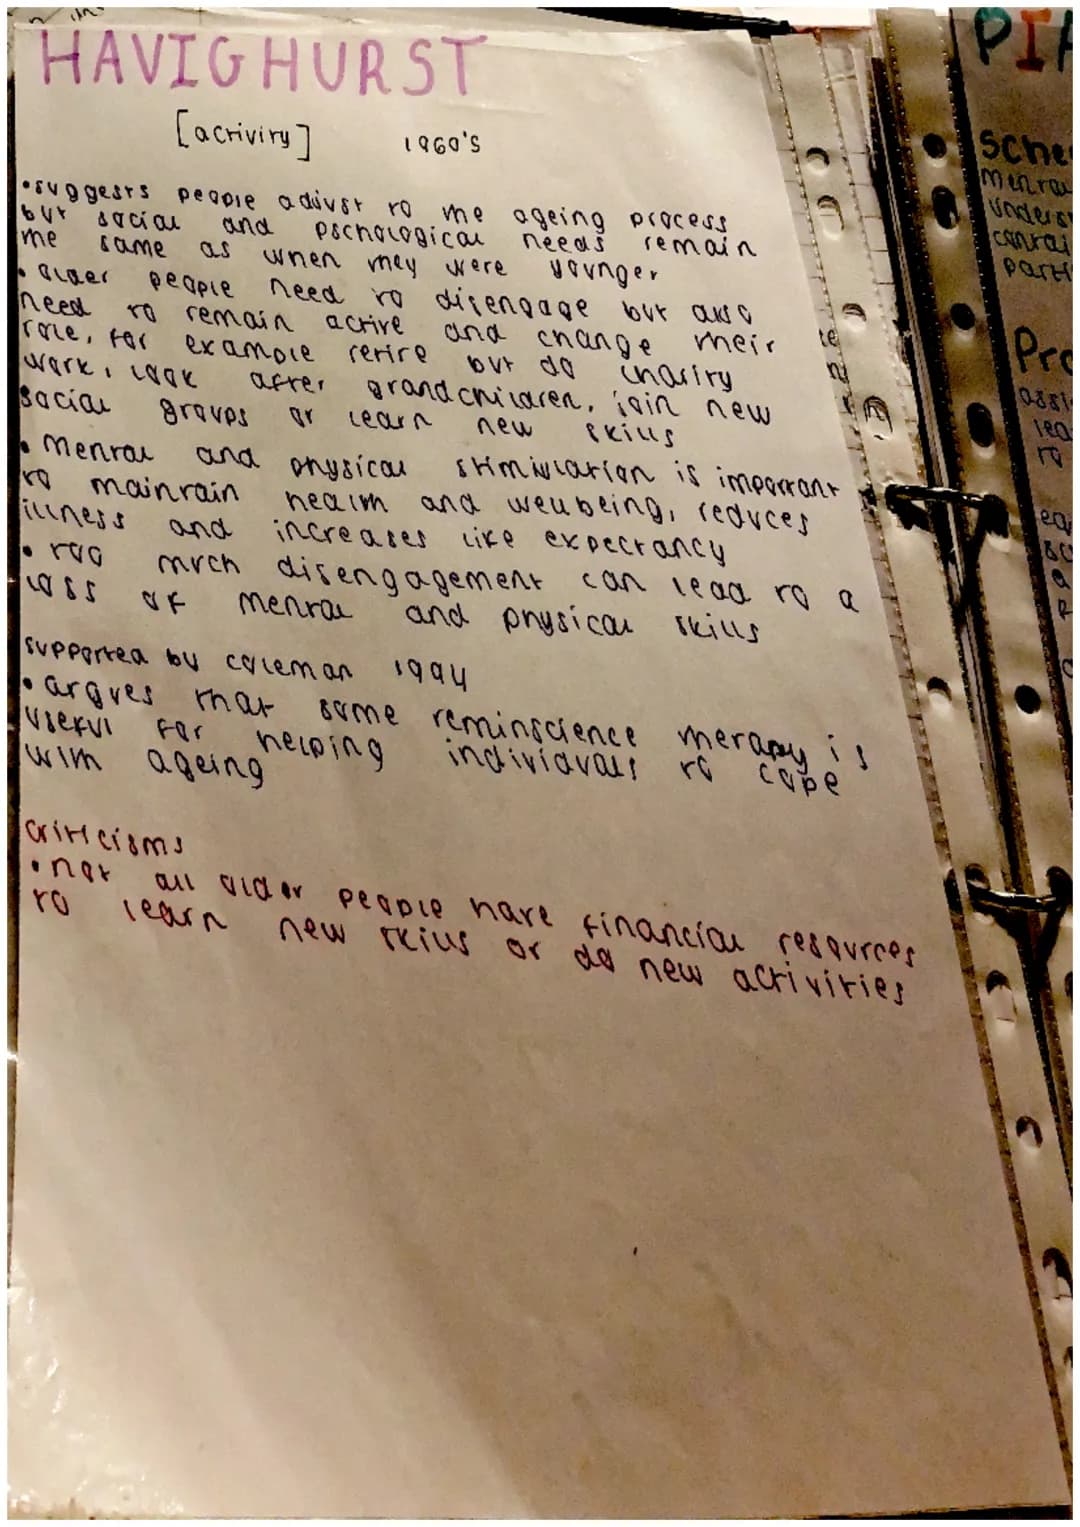 HAVIGHURST
[activity] 1960's
•suggests people adjust to the ageing process
but social and pschological needs remain
the same as when they were younger
•older people need to disengage but also
need to remain active and change their
role, for example retire but do charity
work, look after grandchildren, join new
social groups or learn new skills
•Mental and physical stimiulation is important
to maintain health and wellbeing, reduces
illness and increases like expectancy
•too much disengagement can lead to a
loss of mental and physical skills
supported by coleman 1994
•argues that some reminscience therapy is
useful for helping individuals to cope
with ageing
criticisms
•not all older people have financial resources
to learn new skills or do new activities
Sche
menta
unders
contai
parti
Pro
assi
lea
to